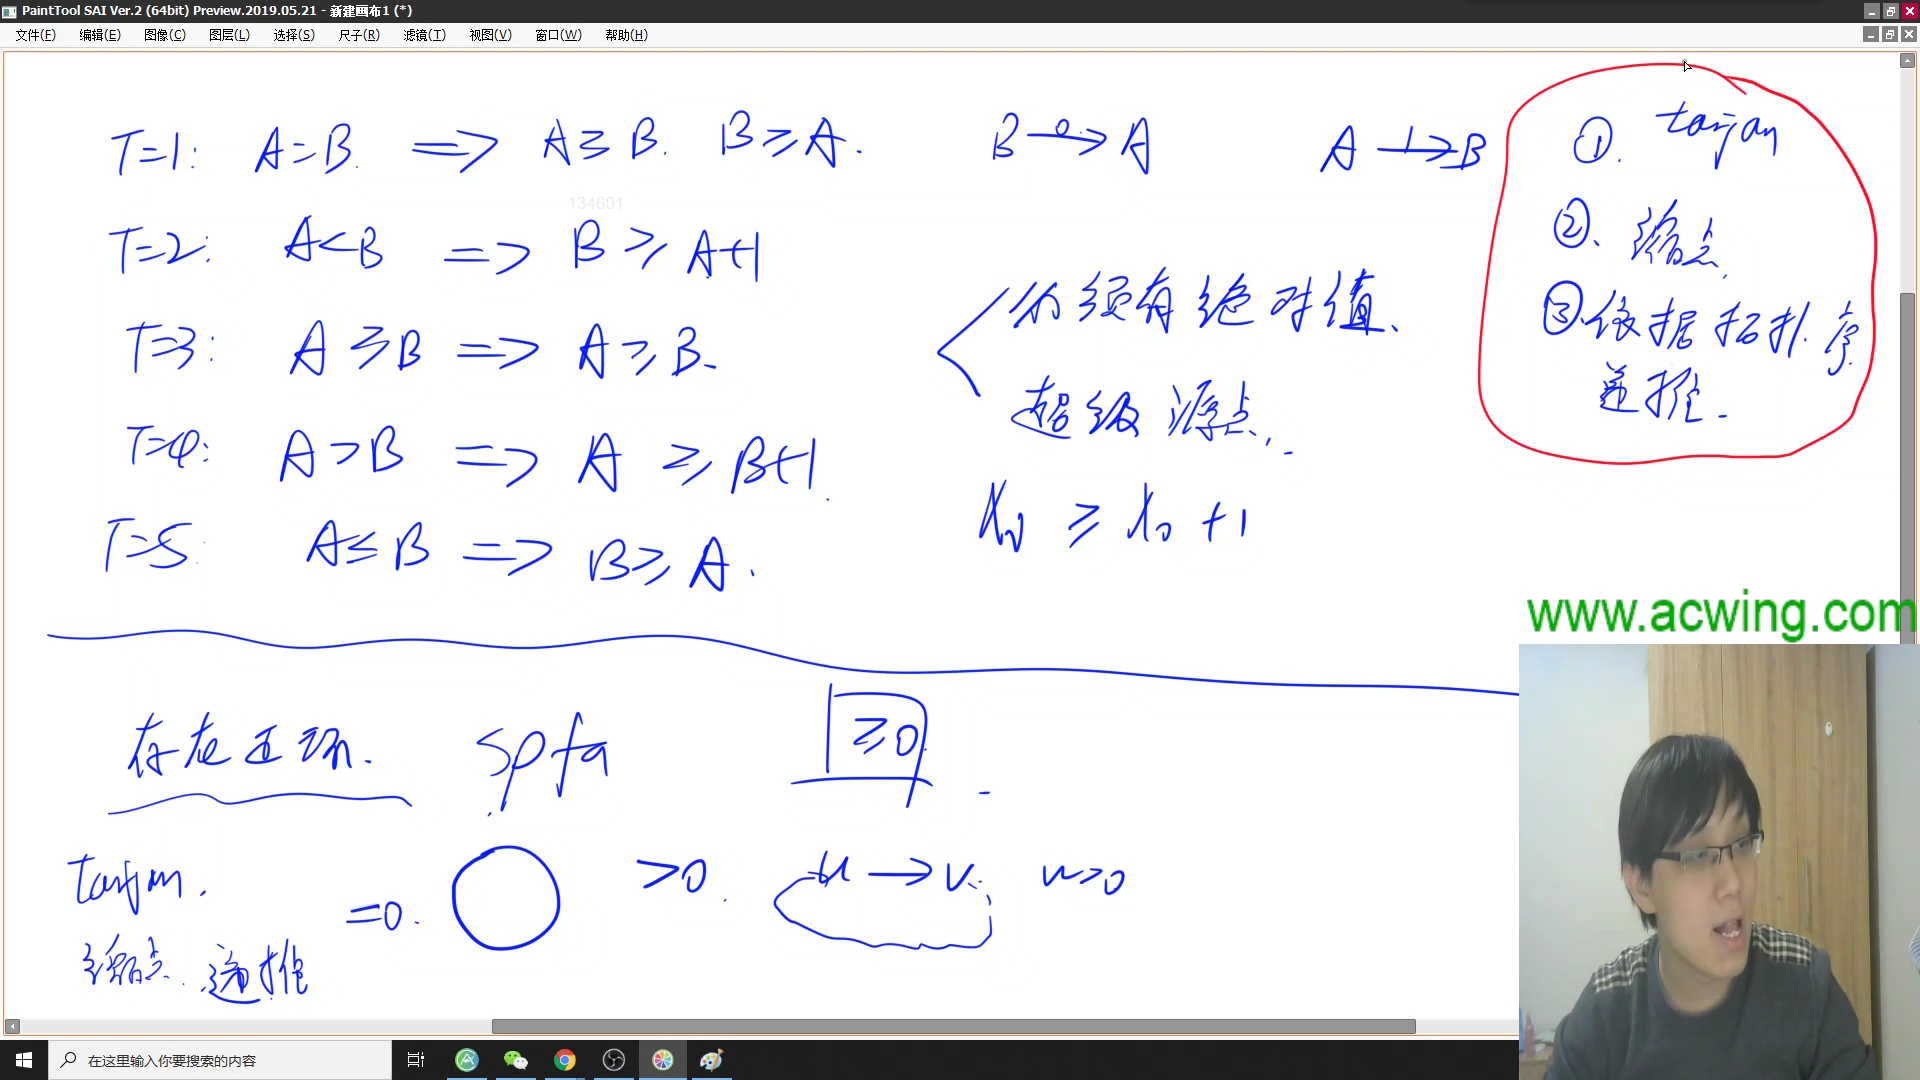 PaintTool SAI Ver.2 (64bit) Preview.2019.05.21 - 新建画布1 (*)
文件(F) 编辑(E) 图像(C) 图层(L) 选择(S) 尺子(R) 滤镜(T) 视图(V) 窗口(W) 帮助(H)
T=1: A=B. => A≥B. B≥A. B -0-> A A -1-> B
134601
T=2: A<B => B≥A+1
T=3: A≥B => A≥B.
T=4: A>B => A≥B+1.
T=5: A≤B => B≥A.
必须有绝对值、
超级源点.
≥ x0+1
①. tarjan
②、缩点.
③、依据拓扑序
递推.
www.acwing.com
存在正环. spfa ≥0
tarjan. =0. >0. u → v. w>0
缩点. 递推
在这里输入你要搜索的内容